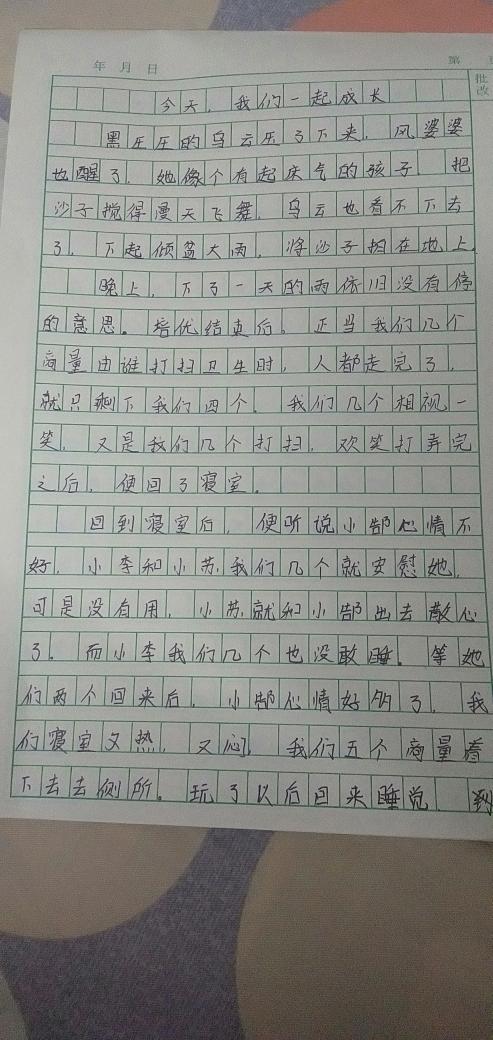 年 月 日
第
批改
今天,我们一起成长
黑压压的乌云压了下来,风婆婆
也醒了,她像个有起床气的孩子,把
沙子搅得漫天飞舞,乌云也看不下去
了,下起倾盆大雨,将沙子拍在地上。
晚上,下了一天的雨依旧没有停
的意思。培优结束后,正当我们几个
商量由谁打扫卫生时,人都走完了,
就只剩下我们四个,我们几个相视一
笑,又是我们几个打扫,欢笑打弄完
之后,便回了寝室。
回到寝室后,便听说小郜心情不
好,小李和小苏,我们几个就安慰她,
可是没有用,小苏就和小郜出去散心
了。而小李我们几个也没敢睡。等她
们两个回来后,小郜心情好的了,我
们寝室又热,又闷,我们五个商量着
下去去侧所。玩了以后回来睡觉,到